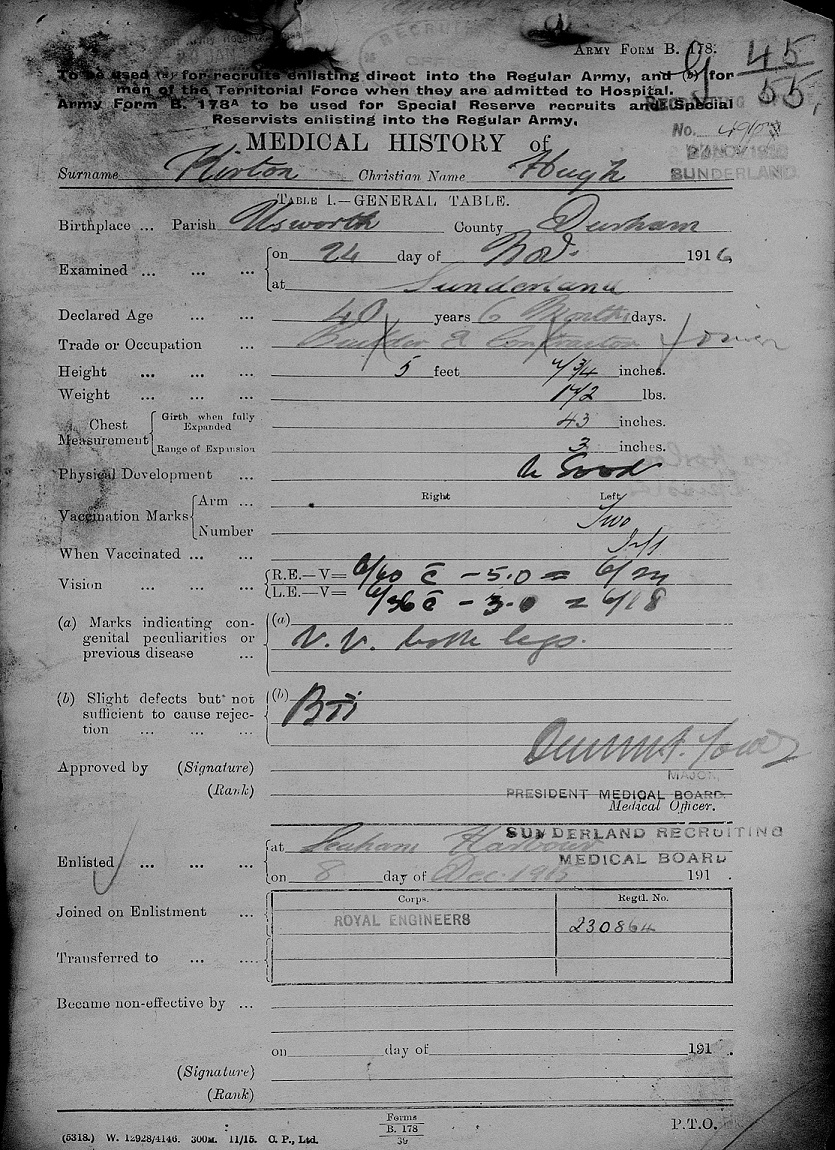 RECRUITING
ARMY FORM B. 178.
45
55
To be used (a) for recruits enlisting direct into the Regular Army, and (b) for
men of the Territorial Force when they are admitted to Hospital.
Army Form B. 178A to be used for Special Reserve recruits and Special
Reservists enlisting into the Regular Army.
MEDICAL HISTORY of
No.
NOV
SUNDERLAND
Surname Kirton Christian Name Hugh
TABLE I.—GENERAL TABLE.
Birthplace ... Parish Usworth County Durham
Examined ... ... ... on 24 day of Nov. 1916
at Sunderland
Declared Age ... ... 40 years 6 Months days.
Trade or Occupation ... Builder & Contractor
Height ... ... ... 5 feet 7 3/4 inches.
Weight ... ... ... 172 lbs.
Chest Measurement Girth when fully Expanded 43 inches.
Range of Expansion 3 inches.
Physical Development ... Good
Right Left
Vaccination Marks Arm ... Two
Number
When Vaccinated ... ... Inf
Vision ... ... ... R.E.—V= 6/60 c̄ - 5.0 = 6/24
L.E.—V= 6/36 c̄ - 3.0 = 6/18
(a) Marks indicating con- (a)
genital peculiarities or V.V. both legs.
previous disease ...
(b) Slight defects but not (b) BII
sufficient to cause rejec-
tion ... ... ...
Approved by (Signature)
MAJOR,
(Rank) PRESIDENT MEDICAL BOARD.
Medical Officer.
SUNDERLAND RECRUITING
MEDICAL BOARD
Enlisted ... ... ... at Seaham Harbour
on 8 day of Dec. 1915 191 .
Corps. Regtl. No.
Joined on Enlistment ... ROYAL ENGINEERS 230864
Transferred to ... ...
Became non-effective by ...
on day of 191 .
(Signature)
(Rank)
Forms
B. 178
39
P.T.O.
(5318.) W. 12928/4146. 300M. 11/15. C. P., Ltd.